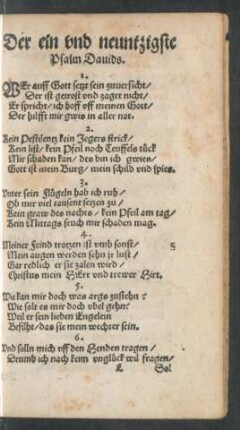 Der ein vnd neuntzigste
Psalm Dauids.
1.
WEr auff Gott setzt sein zuuersicht/
Der ist getrost vnd zaget nicht/
Er spricht/ich hoff vff meinen Gott/
Der hilfft mir gwis in aller not.
2.
Kein Pestilentz kein Jegers strick/
Kein list/kein Pfeil noch Teuffels tück
Mir schaden kan/des bin ich gwies/
Gott ist mein Burg/mein schild vnd spies.
3.
Vnter sein Flügeln hab ich ruh/
Ob mir viel tausent setzen zu/
Kein graw des nachts/kein Pfeil am tag/
Kein Mittags seuch mir schaden mag.
4.
Meiner Feind trotzen ist vmb sonst/
Mein augen werden sehn jr lust/
Gar redlich er sie zalen wird/
Christus mein HErr vnd trewer Hirt.
5.
Wie kan mir doch was args zustehn?
Wie solt es mir doch vbel gehn?
Weil er sein lieben Engelein
Befilht/das sie mein wechter sein.
6.
Vnd solln mich vff den Henden tragen/
Drumb ich nach keim vnglück wil fragen/
Sol